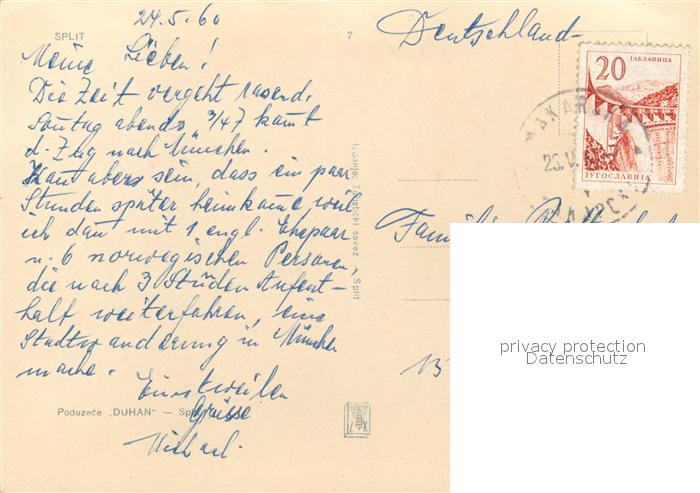 24.5.60
SPLIT
7
Deutschland
Meine Lieben!
Die Zeit vergeht rasend.
Sontag abends 3/47 kamt
d. Zug nach München.
Kann abers sein, dass ein paar
Stunden später heimkame weil
ich dan mit 1 engl. Ehepaar
u. 6 norwegischen Personen,
die nach 3 Stunden Aufent-
halt weiterfahren, eine
Stadtwanderung in München
mache.
Einstweilen
Grüsse
Michael.
Poduzeće „DUHAN" — Split
Izdanje: Turistički savez, Split
20
ЈАБЛАНИЦА
ЈУГОСЛАВИЈА
MAKARSKA
25.V.
Familie
13
privacy protection
Datenschutz